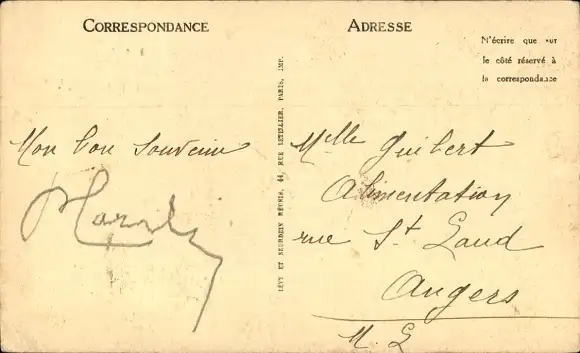 CORRESPONDANCE
ADRESSE
N'écrire que sur
le côté réservé à
la correspondance
LÉVY ET NEURDEIN RÉUNIS, 44, RUE LETELLIER, PARIS, IMP.
Mon bon souvenir
Mlle Guibert
Alimentation
rue St Laud
Angers
M. L